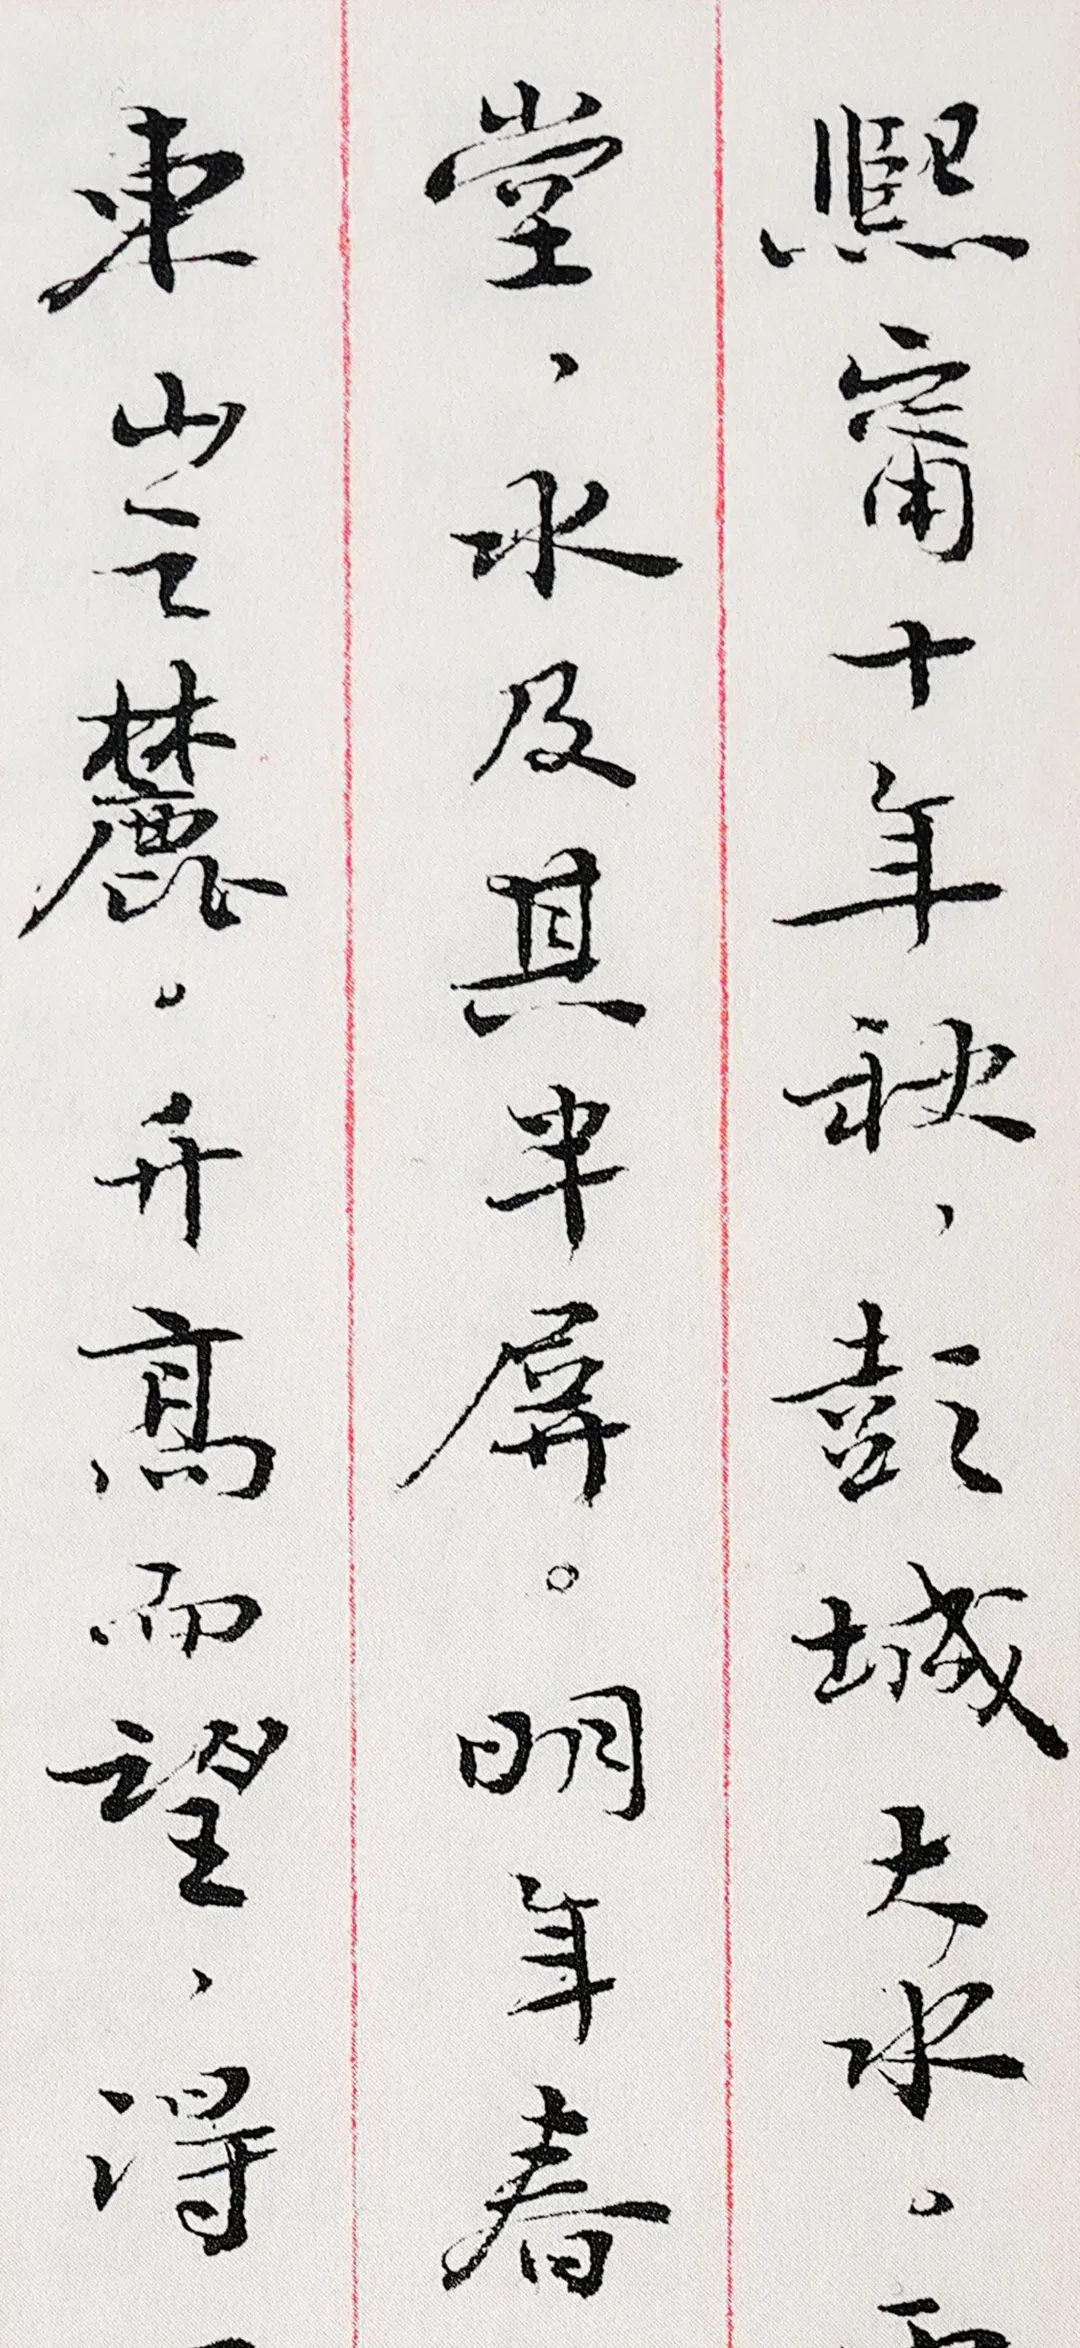 熙甯十年秋，彭城大水。
堂，水及其半扉。明年春
東山之麓。升高而望，得